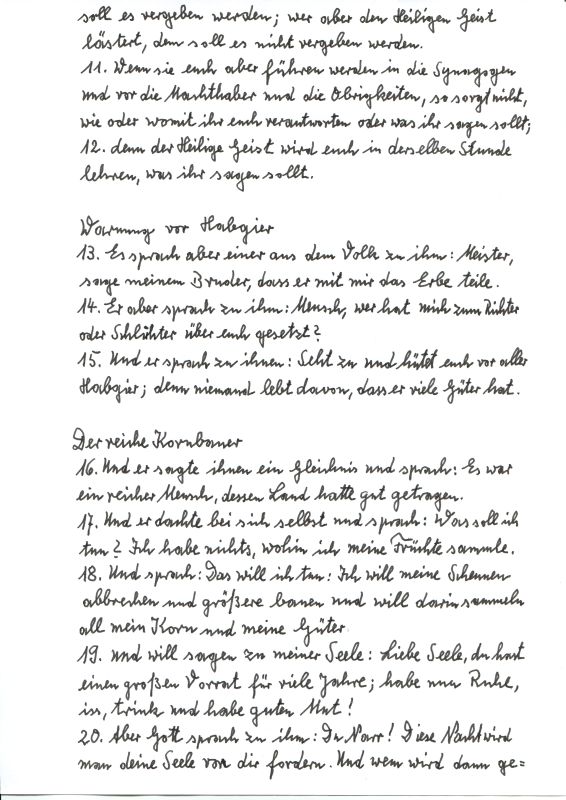 soll es vergeben werden; wer aber den Heiligen Geist
lästert, dem soll es nicht vergeben werden.
11. Wenn sie euch aber führen werden in die Synagogen
und vor die Machthaber und die Obrigkeiten, so sorgt nicht,
wie oder womit ihr euch verantworten oder was ihr sagen sollt;
12. denn der Heilige Geist wird euch in derselben Stunde
lehren, was ihr sagen sollt.
Warnung vor Habgier
13. Es sprach aber einer aus dem Volk zu ihm: Meister,
sage meinem Bruder, dass er mit mir das Erbe teile.
14. Er aber sprach zu ihm: Mensch, wer hat mich zum Richter
oder Schlichter über euch gesetzt?
15. Und er sprach zu ihnen: Seht zu und hütet euch vor aller
Habgier; denn niemand lebt davon, dass er viele Güter hat.
Der reiche Kornbauer
16. Und er sagte ihnen ein Gleichnis und sprach: Es war
ein reicher Mensch, dessen Land hatte gut getragen.
17. Und er dachte bei sich selbst und sprach: Was soll ich
tun? Ich habe nichts, wohin ich meine Früchte sammle.
18. Und sprach: Das will ich tun: Ich will meine Scheunen
abbrechen und größere bauen und will darin sammeln
all mein Korn und meine Güter
19. und will sagen zu meiner Seele: Liebe Seele, du hast
einen großen Vorrat für viele Jahre; habe nun Ruhe,
iss, trink und habe guten Mut!
20. Aber Gott sprach zu ihm: Du Narr! Diese Nacht wird
man deine Seele von dir fordern. Und wem wird dann ge=